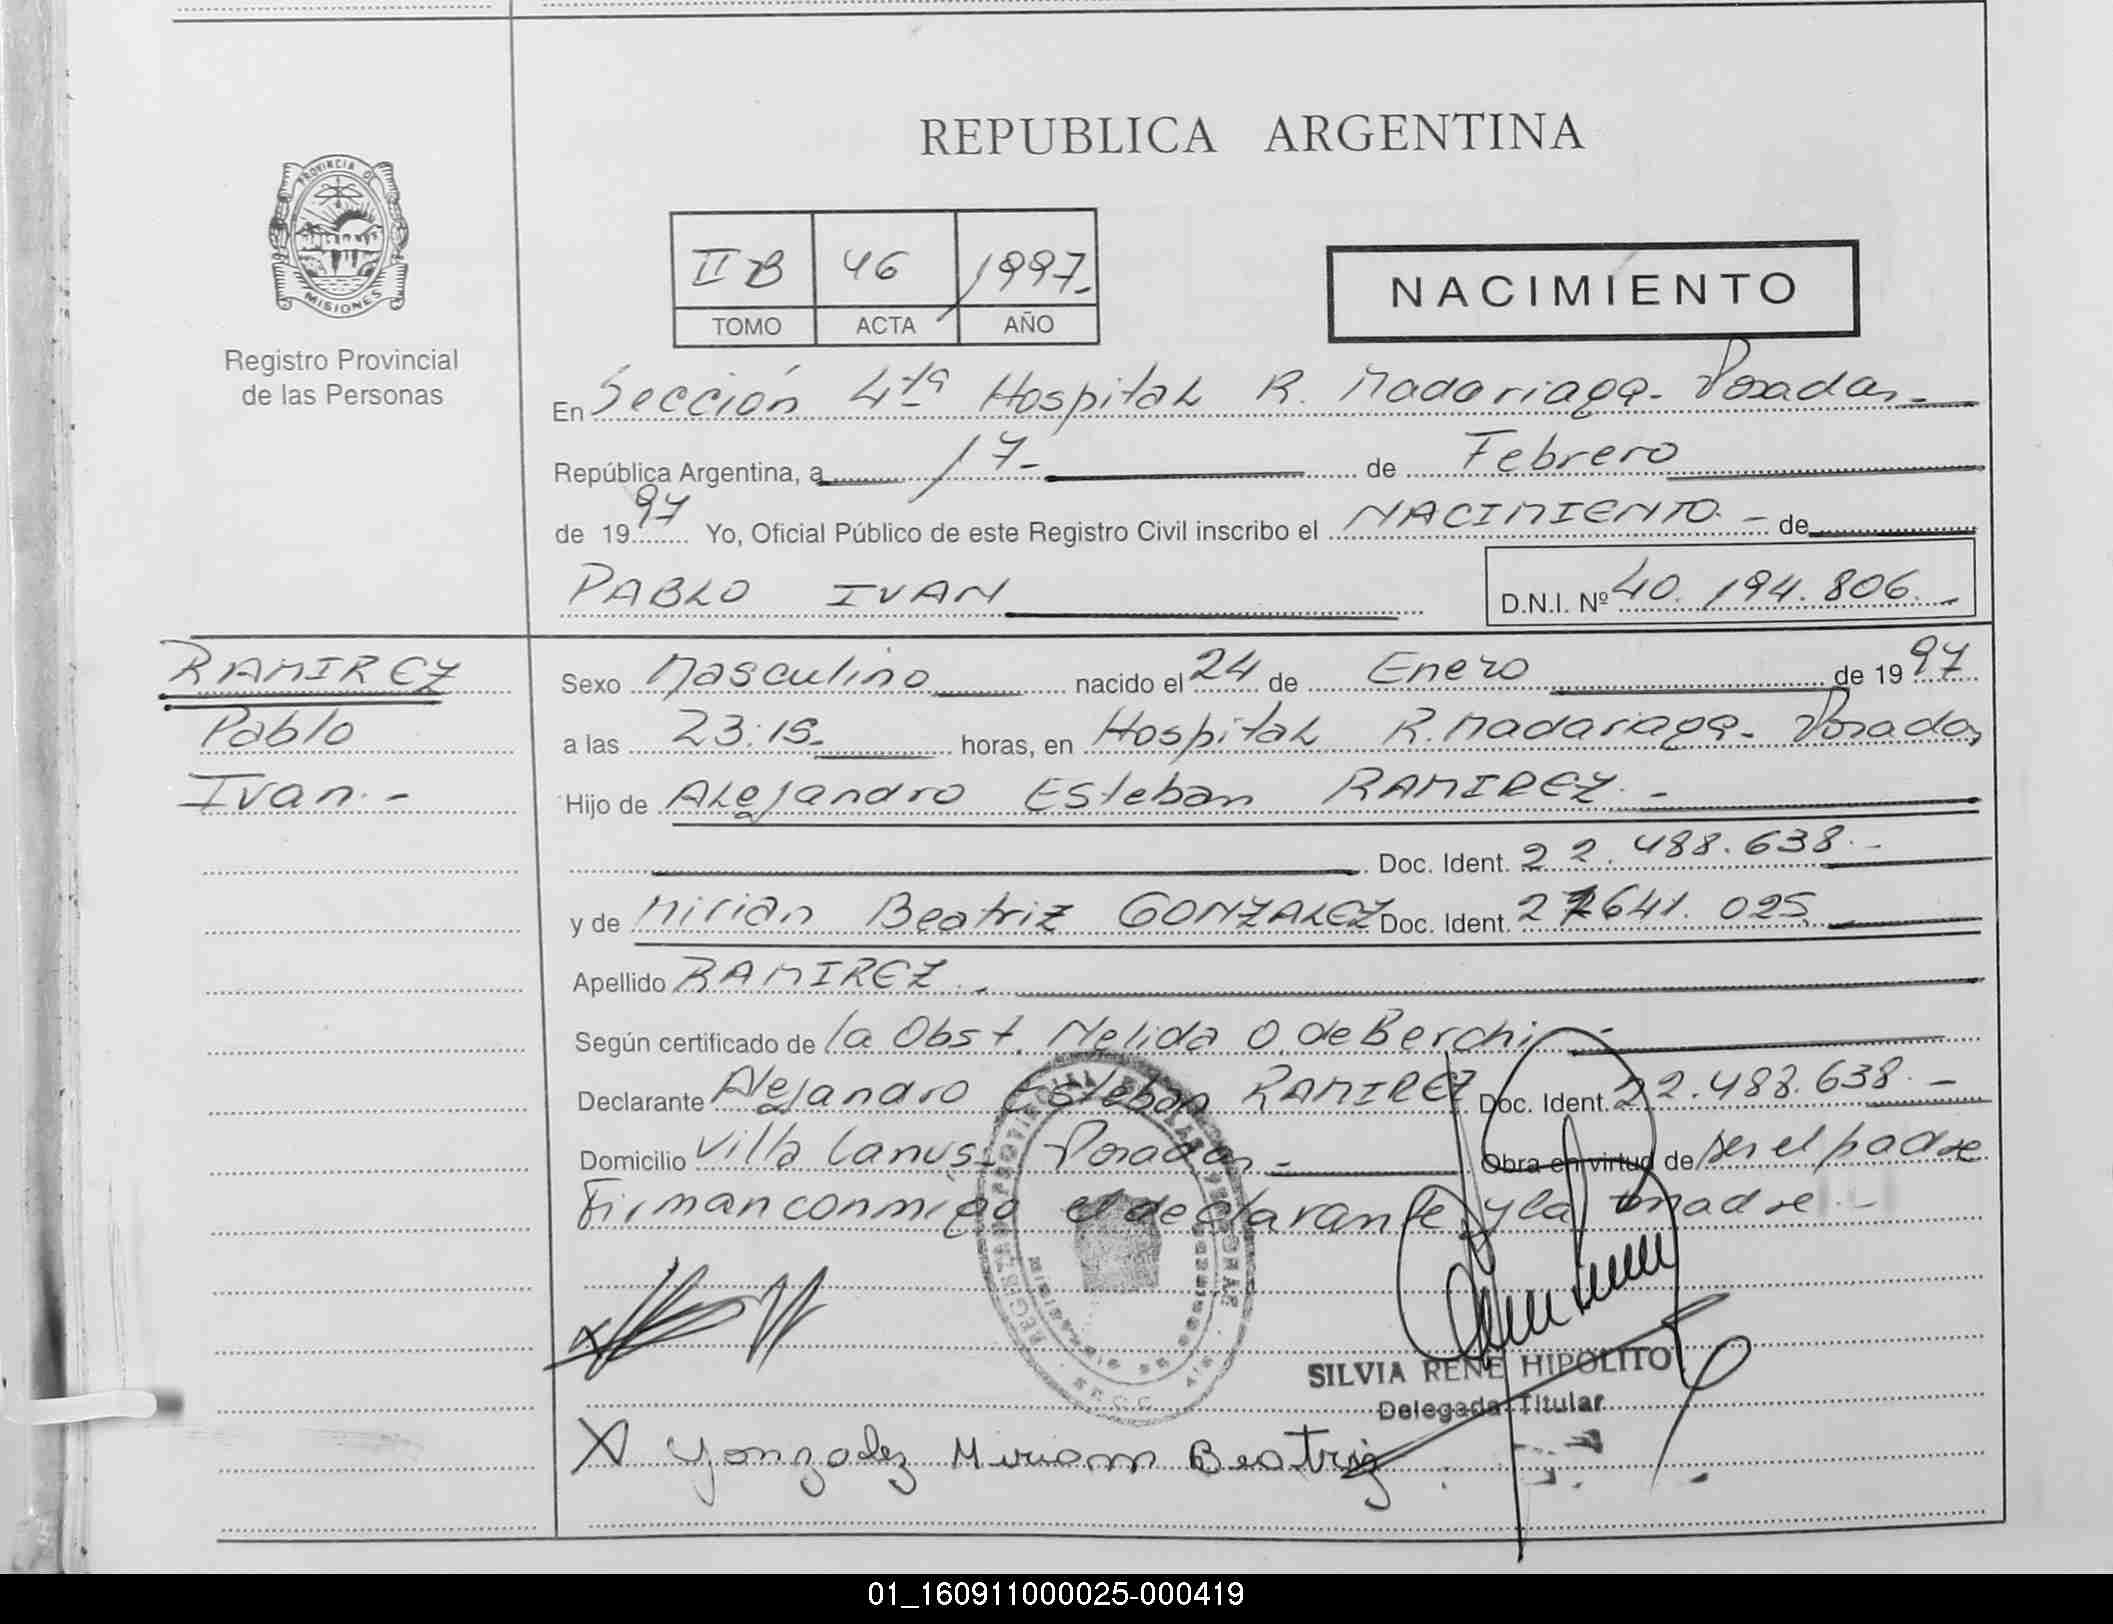 REPUBLICA ARGENTINA
PROVINCIA DE
MISIONES
Registro Provincial
de las Personas
II B 46 1997.-
TOMO ACTA AÑO
NACIMIENTO
En Sección 4ta Hospital R. Madariaga - Posadas.-
República Argentina, a 17- de Febrero
de 1997 Yo, Oficial Público de este Registro Civil inscribo el NACIMIENTO - de
PABLO IVAN
D.N.I. Nº 40.194.806.-
RAMIREZ
Pablo
Ivan.-
Sexo Masculino nacido el 24 de Enero de 1997
a las 23:15.- horas, en Hospital R. Madariaga - Posadas
Hijo de Alejandro Esteban RAMIREZ.-
Doc. Ident. 22.488.638.-
y de Mirian Beatriz GONZALEZ Doc. Ident. 27641.025
Apellido RAMIREZ.-
Según certificado de la Obst. Nelida O. de Berchi.-
Declarante Alejandro Esteban RAMIREZ Doc. Ident. 22.488.638.-
Domicilio Villa Lanus- Posadas.- Obra en virtud de ser el padre
Firman conmigo el declarante y la madre.-
SILVIA RENE HIPOLITO
Delegada Titular
X Gonzalez Miriam Beatriz
01_160911000025-000419